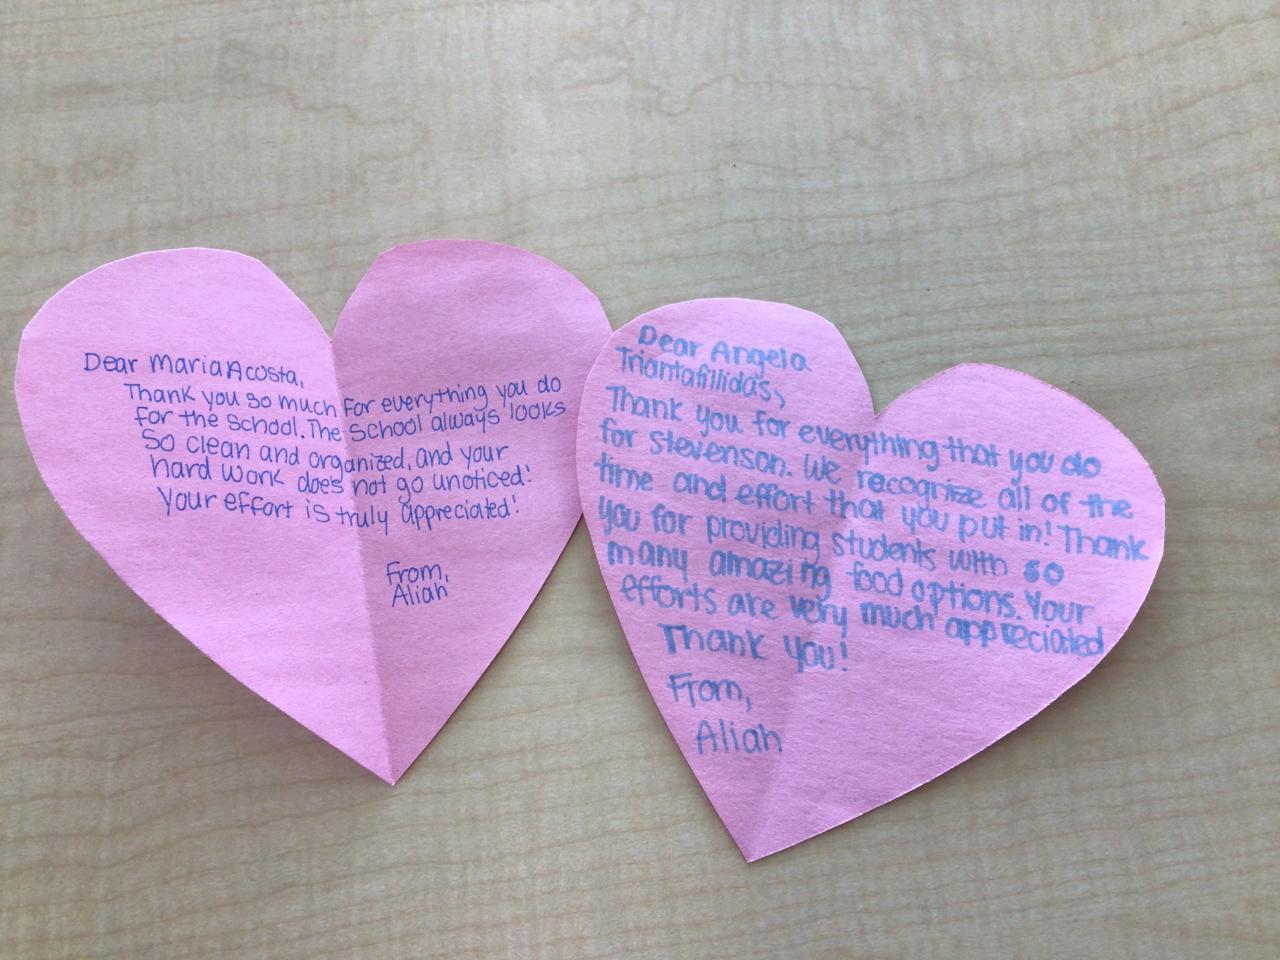 Dear Maria Acosta,
Thank you so much for everything you do
for the school. The school always looks
so clean and organized, and your
hard work does not go unoticed!
Your effort is truly appreciated!
From,
Aliah
Dear Angela
Triantafillidas,
Thank you for everything that you do
for stevenson. We recognize all of the
time and effort that you put in! Thank
you for providing students with so
many amazing food options. Your
efforts are very much appreciated
Thank you!
From,
Aliah